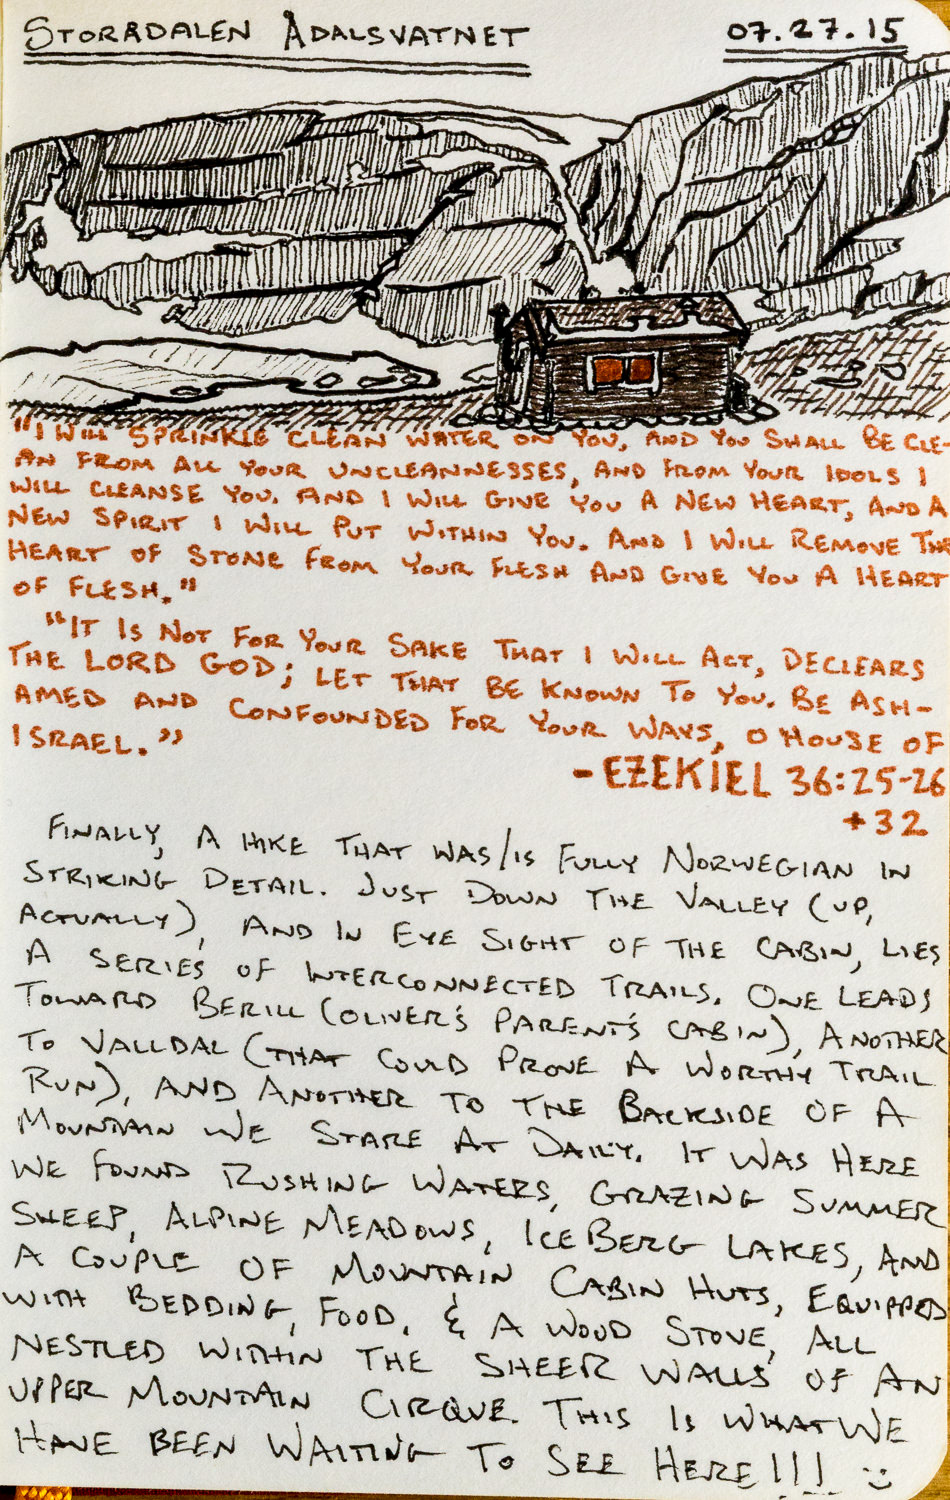 STORRDALEN ÅDALSVATNET
07.27.15
"I WILL SPRINKLE CLEAN WATER ON YOU, AND YOU SHALL BE CLE-
AN FROM ALL YOUR UNCLEANNESSES, AND FROM YOUR IDOLS I
WILL CLEANSE YOU. AND I WILL GIVE YOU A NEW HEART, AND A
NEW SPIRIT I WILL PUT WITHIN YOU. AND I WILL REMOVE THE
HEART OF STONE FROM YOUR FLESH AND GIVE YOU A HEART
OF FLESH."
"IT IS NOT FOR YOUR SAKE THAT I WILL ACT, DECLEARS
THE LORD GOD; LET THAT BE KNOWN TO YOU. BE ASH-
AMED AND CONFOUNDED FOR YOUR WAYS, O HOUSE OF
ISRAEL."
- EZEKIEL 36:25-26
+32
FINALLY, A HIKE THAT WAS/IS FULLY NORWEGIAN IN
STRIKING DETAIL. JUST DOWN THE VALLEY (UP,
ACTUALLY), AND IN EYE SIGHT OF THE CABIN, LIES
A SERIES OF INTERCONNECTED TRAILS. ONE LEADS
TOWARD BERILL (OLIVER'S PARENT'S CABIN), ANOTHER
TO VALLDAL (THAT COULD PROVE A WORTHY TRAIL
RUN), AND ANOTHER TO THE BACKSIDE OF A
MOUNTAIN WE STARE AT DAILY. IT WAS HERE
WE FOUND RUSHING WATERS, GRAZING SUMMER
SHEEP, ALPINE MEADOWS, ICEBERG LAKES, AND
A COUPLE OF MOUNTAIN CABIN HUTS, EQUIPPED
WITH BEDDING, FOOD, & A WOOD STOVE, ALL
NESTLED WITHIN THE SHEER WALLS OF AN
UPPER MOUNTAIN CIRQUE. THIS IS WHAT WE
HAVE BEEN WAITING TO SEE HERE!!! :)